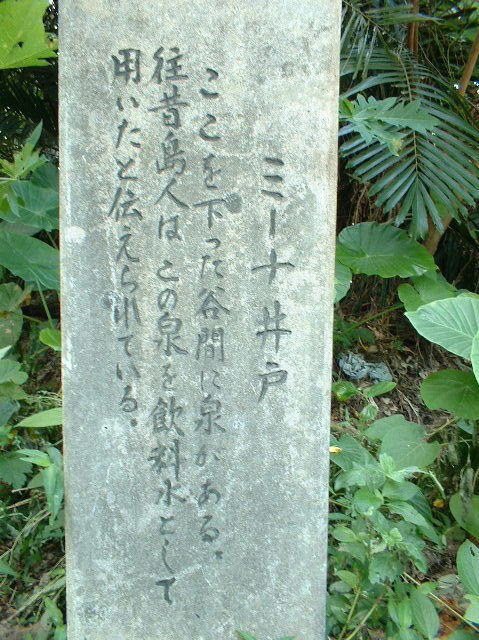 ミーナ井戸
ここを下った谷間に泉がある。
往昔島人はこの泉を飲料水として
用いたと伝えられている。